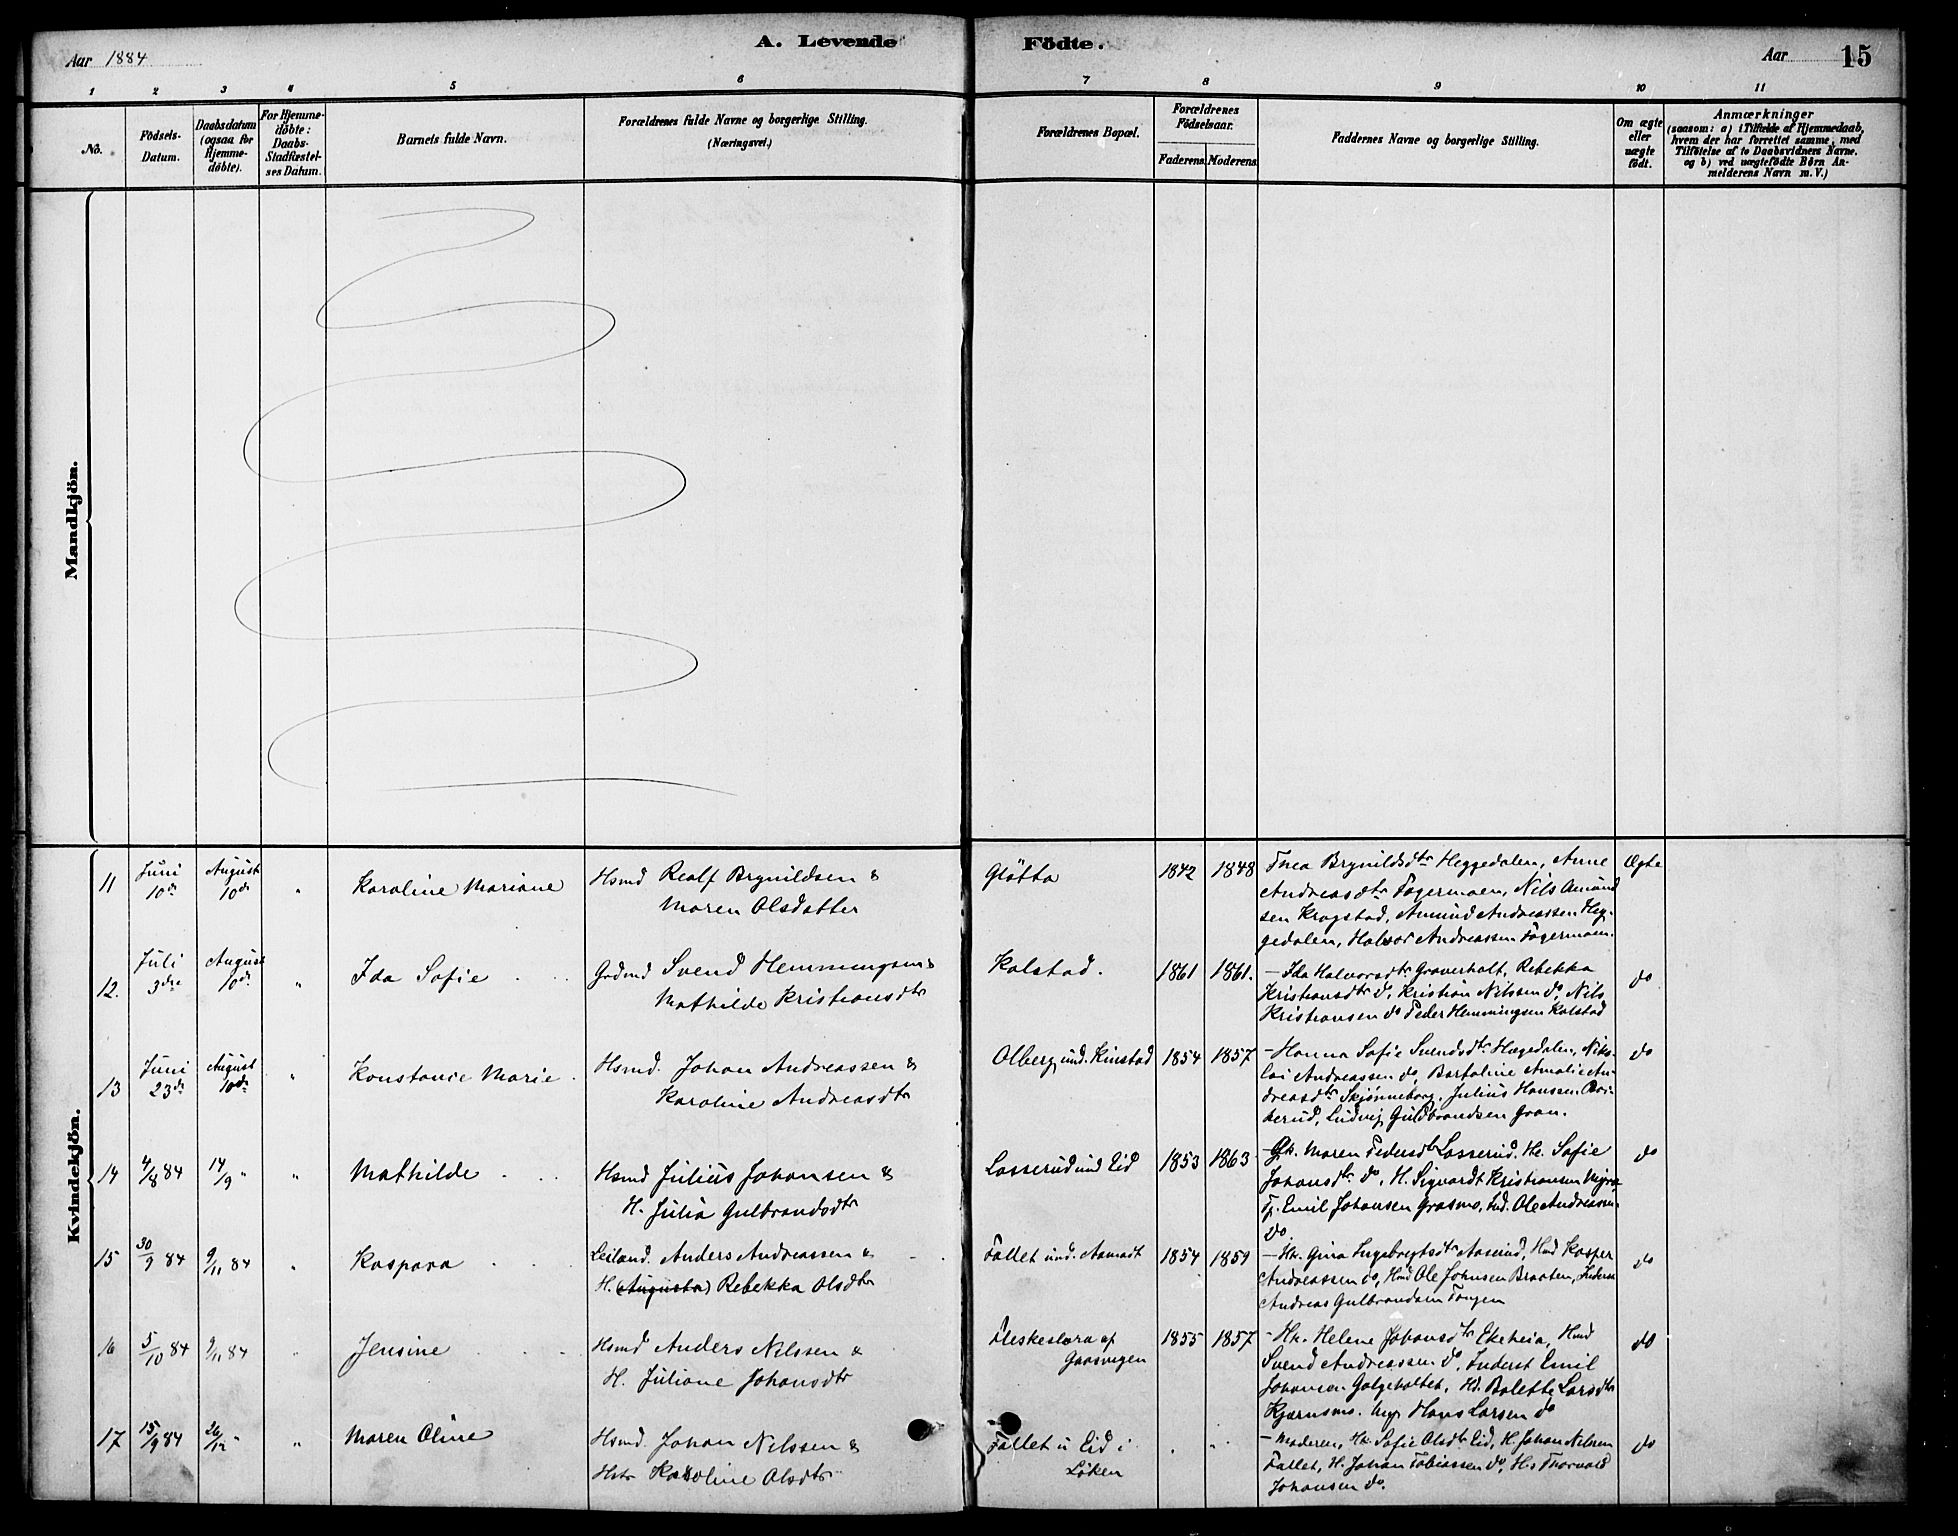 Aar 1884
A. Levende
Födte.
Aar
15
1 2 3 4 5 6 7 8 9 10 11
No.
Födsels-Datum.
Daabsdatum (ogsaa for Hjemme-döbte).
For Hjemme-döbte: Daabs-Stadfæstel-ses Datum.
Barnets fulde Navn.
Forældrenes fulde Navne og borgerlige Stilling.
(Næringsvei.)
Forældrenes Bopæl.
Forældrenes Födselsaar.
Faderens. Moderens.
Faddernes Navne og borgerlige Stilling.
Om ægte eller uægte födt.
Anmærkninger
(saasom: a) i Tilfælde af Hjemmedaab,
hvem der har forrettet samme, med
Tilföielse af to Daabsvidners Navne.
og b) ved uægtefödte Börn An-
melderens Navn m. V.)
Mandkjön.
Kvindekjön.
11 Juni 10de August 10de " Karoline Mariane Hsmd Realf Brynildsen &
Maren Olsdatter
Gløtta 1842 1848 Thea Brynildsdtr Heggedalen, Anne Ægte
Andreasdtr Fagermoen, Nils Amund
sen Krogstad, Amund Andreassen Heg-
gedalen, Halvor Andreassen Fagermoen.
12. Juli 3die August 10de " Ida Sofie Grdmd Svend Hemmingsen &
Mathilde Kristiansdtr
Kolstad. 1861 1861. - Ida Halvorsdtr Graverholt, Rebekka do
Kristiansdtr do, Kristian Nilssen do, Nils
Kristiansen do Peder Hemmingsen Kolstad
13 Juni 23de August 10de " Konstance Marie Hsmd. Johan Andreassen &
Karoline Andreasdtr
Olberg und. Kinstad 1854 1857 - Hanna Sofie Svendsdtr Hægedalen, Niko- do
lai Andreassen do, Bartoline Amalie An-
dreasdtr Skjønneborg. Julius Hanssen
Ludvig Guldbrandsen Gran.
14 4/8 84 14/9 " " Mathilde Hsmd Julius Johansen &
H. Julia Gulbrandsdtr
Lasserud und Eid 1853 1863 Maren Pedersdtr Lasserud. H. Sofie do
Johansdtr do, H. Sigvardt Kristiansen
Emil Johansen Grasmo, Ole Andreassen
do
15 30/9 84 9/11 84 " Kaspara Leiland. Anders Andreassen &
H. (Augusta) Rebekka Olsdtr
Fallet und. Aamodt 1854 1859 - Hr. Gina Ingebregtsdtr Aaserud, Hmd Kasper do
Andreassen do, Hmd Ole Johnsen Braaten, Inderst
Andreas Gulbrandsen Tangen
16 5/10 84 9/11 84 " Jensine Hsmd Anders Nilssen &
H. Juliane Johansdtr
af 1855 1857 - Hr. Helene Johansdtr Ekeheia, Hmd do
Svend Andreassen do, Inderst Emil
Johansen Galgeholtet, Hd. Bolette Larsdtr
Kjærnsmo. Ungk Hans Larsen do
17 15/9 84 26/12 " " Maren Oline Hsmd. Johan Nilssen &
Hstr Karoline Olsdtr
Fallet u Eid i
Løken
" " - Moderen, Hr. Sofie Olsdtr Eid, H. Johan Nilssen do
Fallet, H. Johan Tobiassen do, Hs Thorvald
Johansen do.